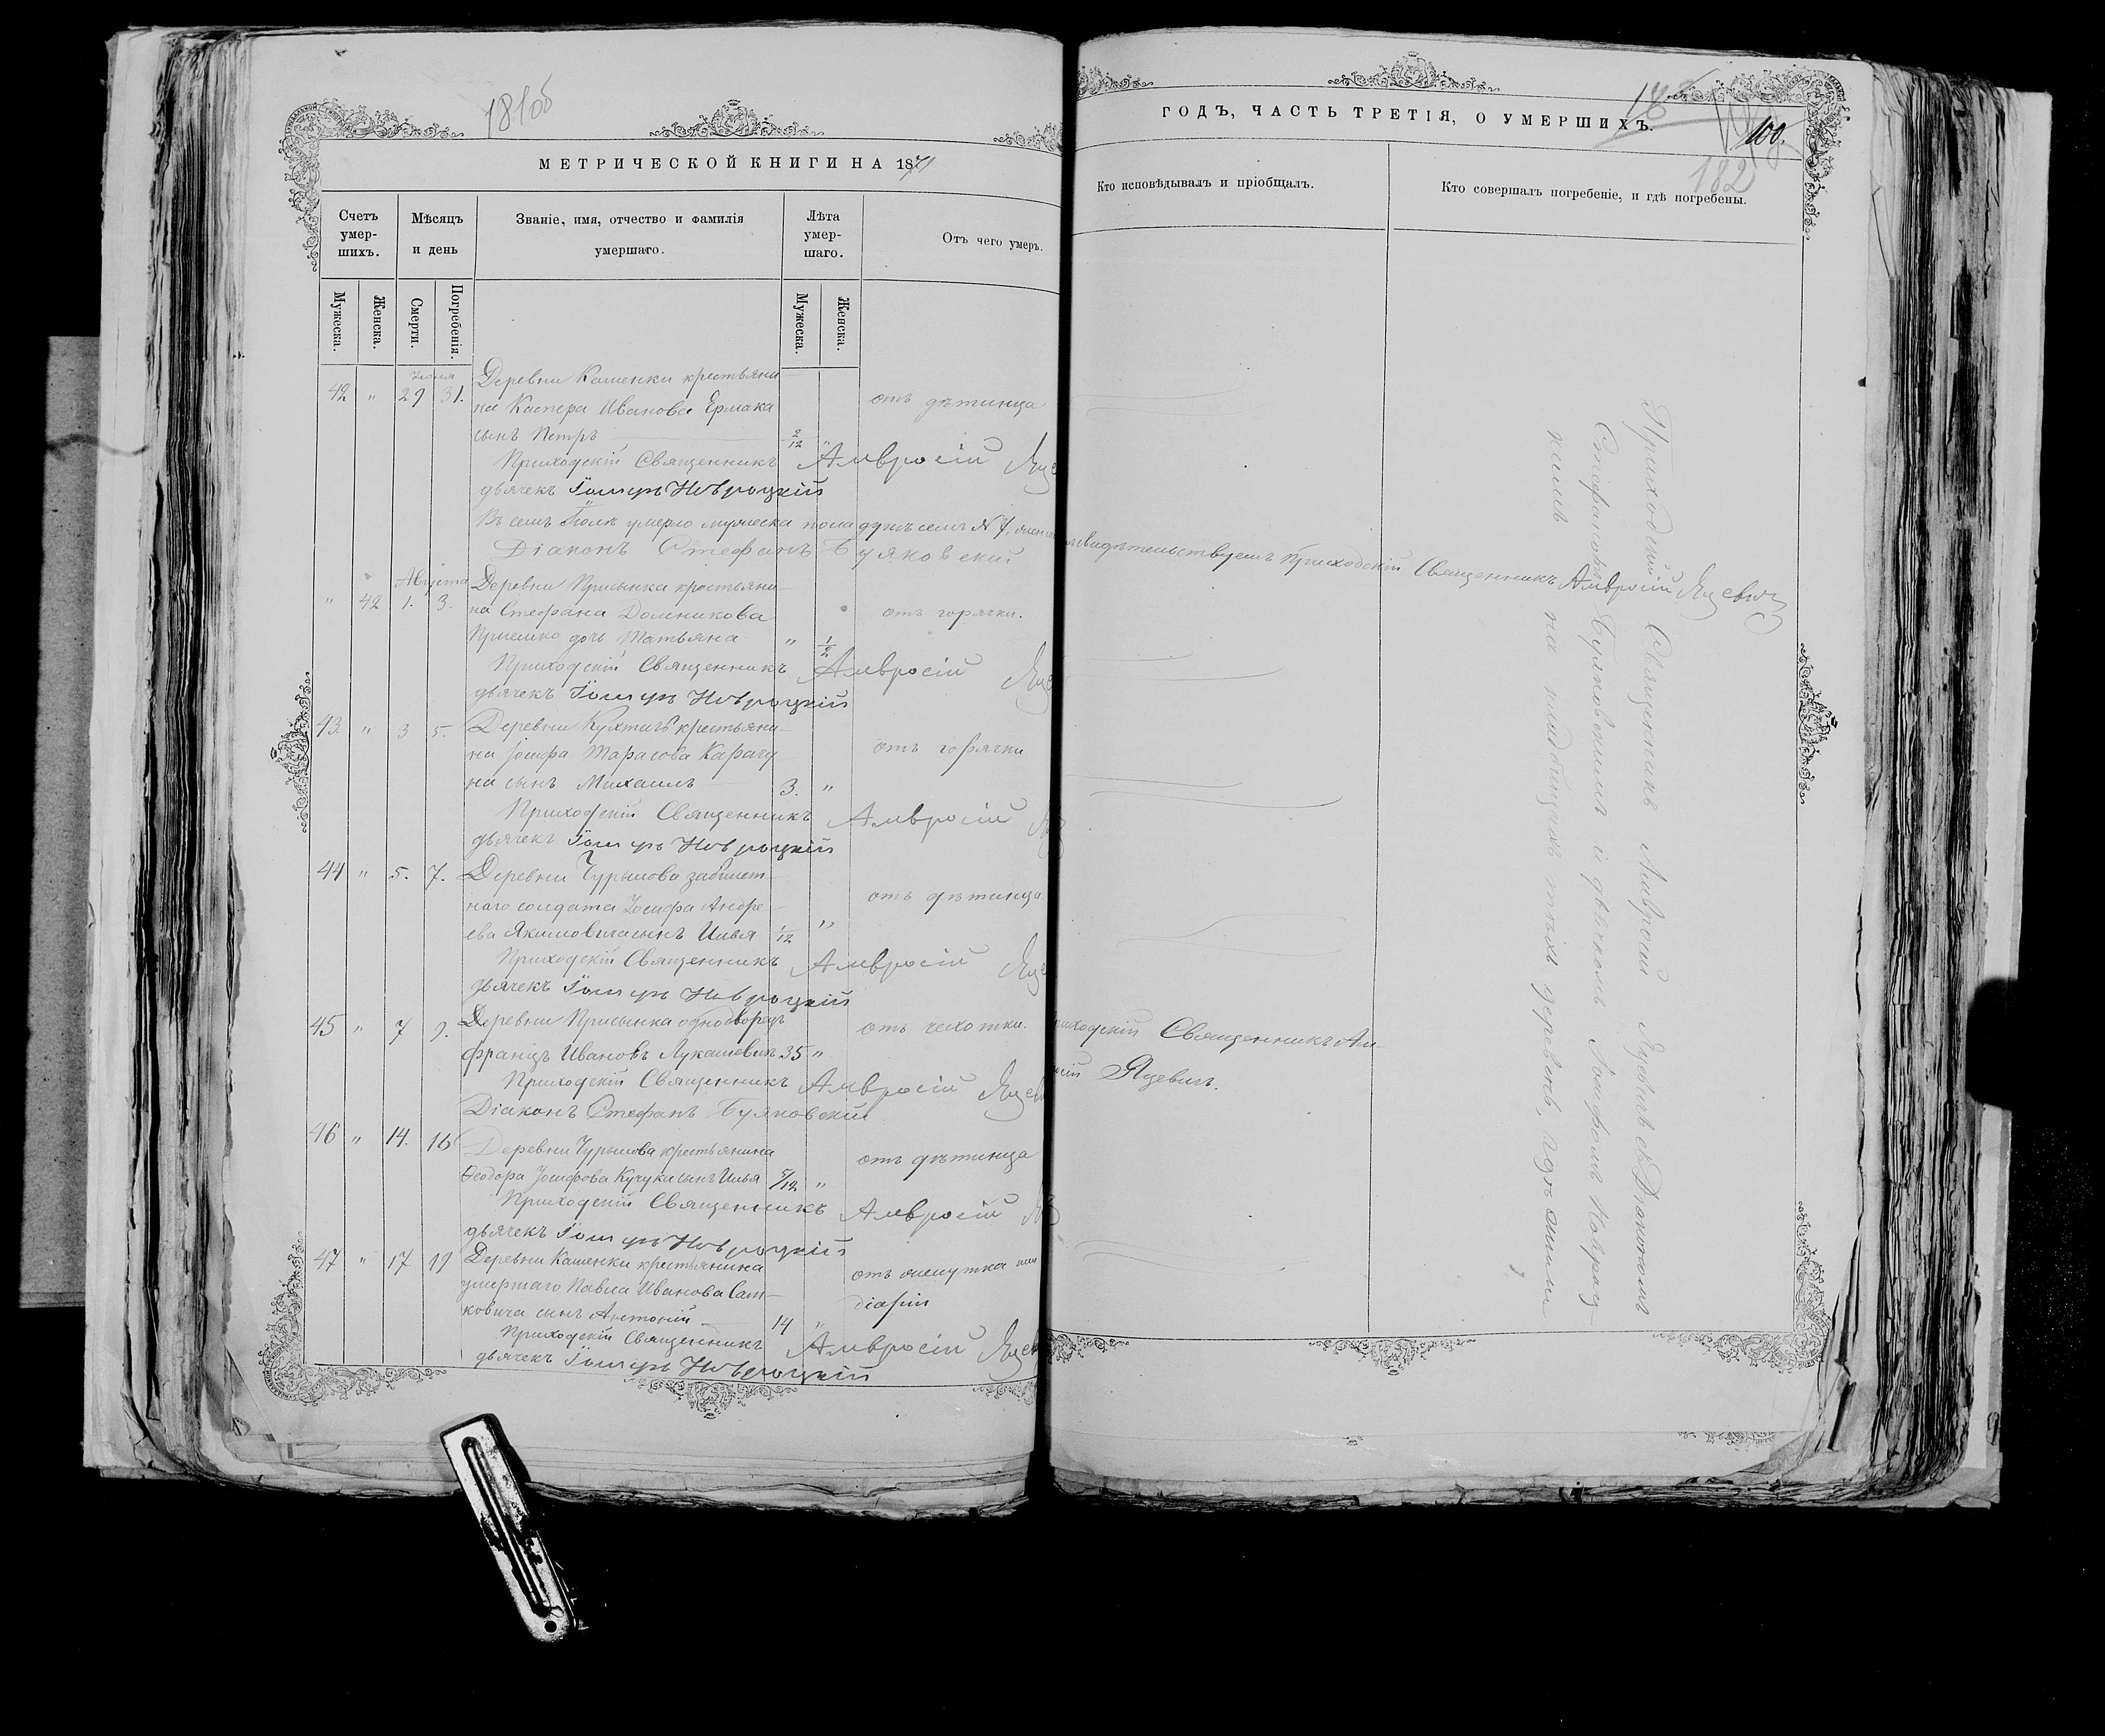 181об
МЕТРИЧЕСКОЙ КНИГИ НА 1871
Счетъ умер-шихъ.
Мѣсяцъ и день
Званіе, имя, отчество и фамилія умершаго.
Лѣта умер-шаго.
Отъ чего умеръ.
Мужеска.
Женска.
Смерти.
Погребенія.
Мужеска.
Женска.
Іюля
42 " 29 31. Деревни Кашенки крестьяни-
на Каспера Иванова Ермака отъ дѣтинца
сынъ Петръ 2/12 "
Приходскій Священникъ Амвросій
дьячекъ Іосифъ Новроцкій
Въ семъ Іюлѣ умерло мужеска пола душъ семь № 7,
Діаконъ Стефанъ Буяковскій
Августа
Деревни Присынка крестьяни-
" 42 1. 3. на Стефана Доминикова отъ горячки.
дочь Татьяна " 1/2
Приходскій Священникъ Амвросій
дьячекъ Іосифъ Новроцкій
43. " 3 5. Деревни Кухтичъ крестьяни-
на Іосифа Тарасова Карачу отъ горячки
на сынъ Михаилъ 3. "
Приходскій Священникъ Амвросій
дьячекъ Іосифъ Новроцкій
44 " 5. 7. Деревни Чурилова забилет-
наго солдата Іосифа Андре- отъ дѣтинца
ева Якимовича сынъ Илья 1/12 "
Приходскій Священникъ Амвросій
дьячекъ Іосифъ Новроцкій
45 " 7 9. Деревни Присынка однодворецъ отъ чехотки.
Францъ Ивановъ Лукашевичъ 35 "
Приходскій Священникъ Амвросій
Діаконъ Стефанъ Буяковскій
46 " 14. 16 Деревни Чурилова крестьянина отъ дѣтинца
Ѳеодора Іосифова Кучуки сынъ Илья 5/12 "
Приходскій Священникъ Амвросій
дьячекъ Іосифъ Новроцкій
47 " 17 19 Деревни Кашенки крестьянина
умершаго Павла Иванова Сат- отъ
ковича сынъ Антоній 14 "
Приходскій Священникъ Амвросій
дьячекъ Іосифъ Новроцкій
ГОДЪ, ЧАСТЬ ТРЕТІЯ, О УМЕРШИХЪ.
100.
182
Кто исповѣдывалъ и пріобщалъ.
Кто совершалъ погребеніе, и гдѣ погребены.
свидѣтельствуемъ Приходскій Священникъ Амвросій Яцевичъ
Священникъ Ам-
Яцевичъ.
Приходскій Священникъ Амвросій Яцевичъ съ Діакономъ
Стефаномъ Буяковскимъ и дьячкомъ Іосифомъ Новроц-
кимъ на кладбищахъ тѣхъ деревень, гдѣ жили